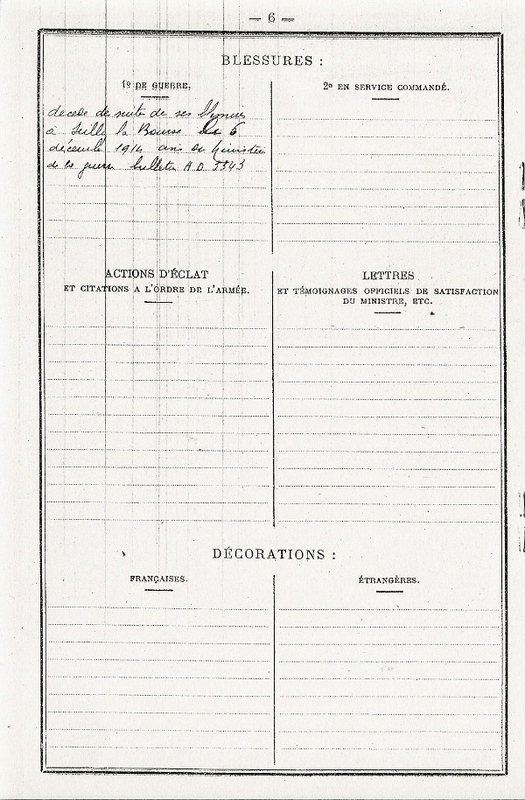 — 6 —
BLESSURES :
1º DE GUERRE.
2º EN SERVICE COMMANDÉ.
décédé de suite de ses blessures
à Sailly la Bourse le 6
décembre 1914 avis du Ministère
de la guerre bulletin A D 3343
ACTIONS D'ÉCLAT
ET CITATIONS A L'ORDRE DE L'ARMÉE.
LETTRES
ET TÉMOIGNAGES OFFICIELS DE SATISFACTION
DU MINISTRE, ETC.
DÉCORATIONS :
FRANÇAISES.
ÉTRANGÈRES.